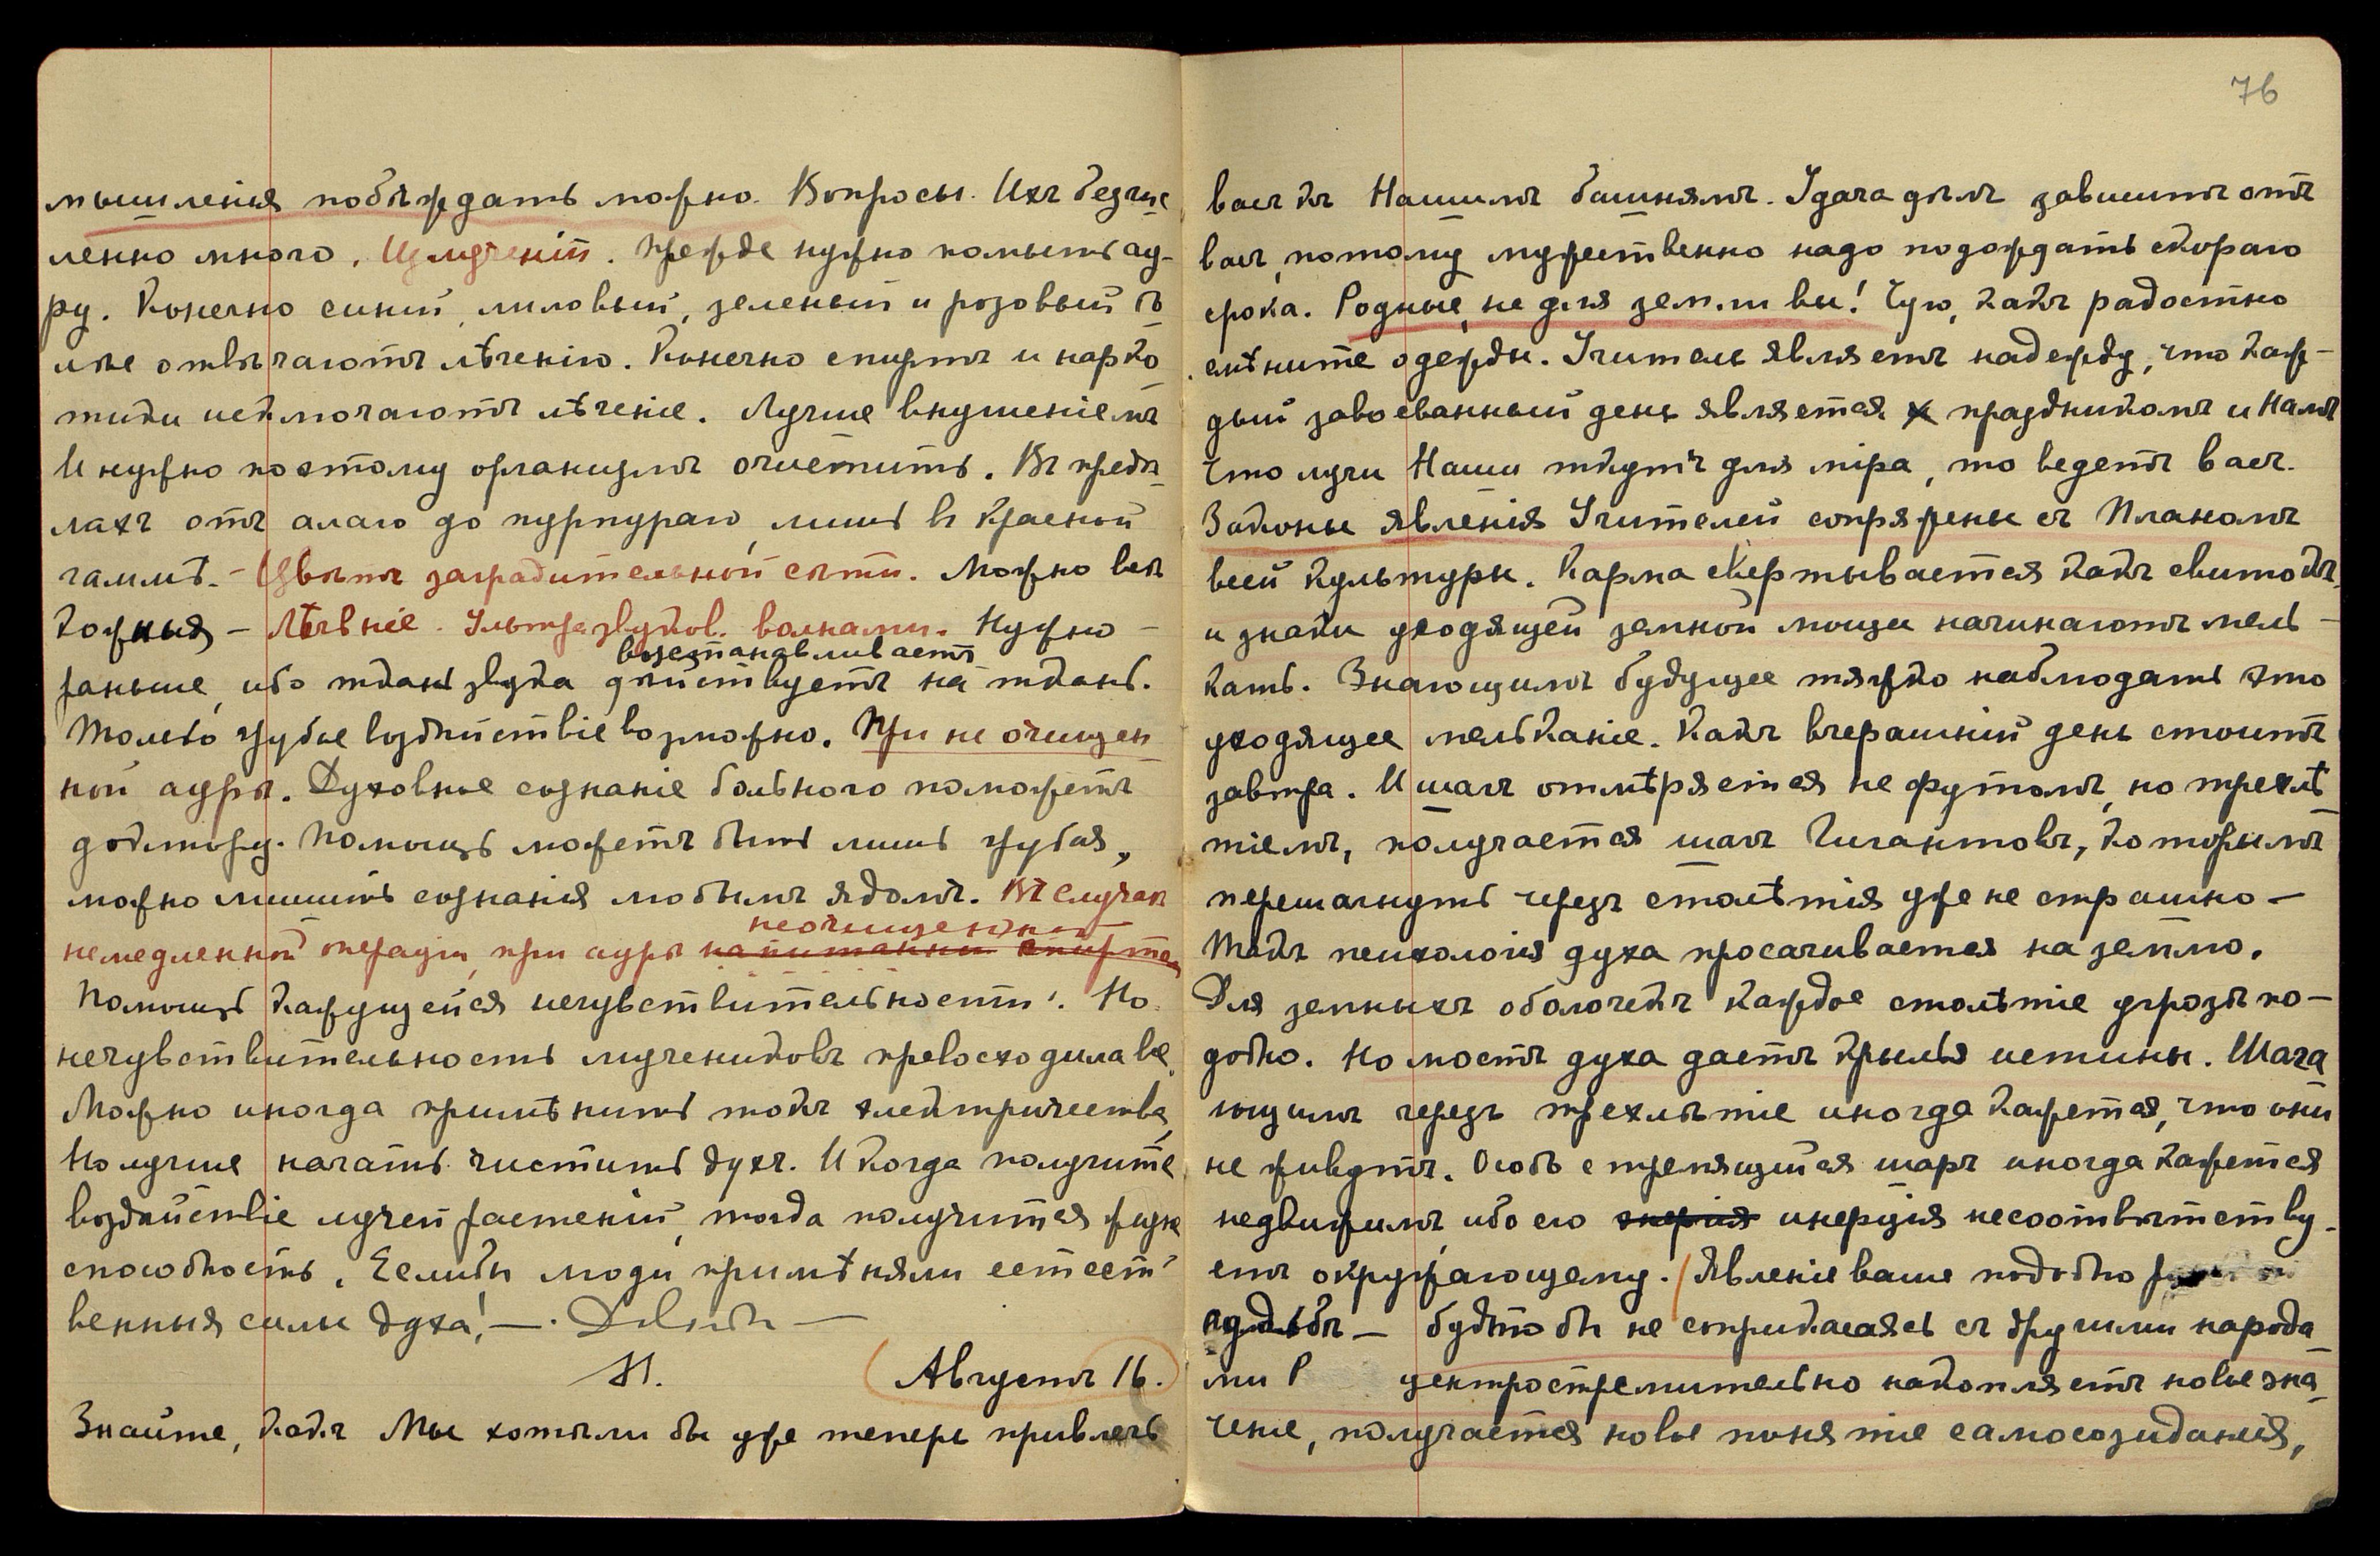 мышленія побѣждать можно. Вопросы. Ихъ безчис
ленно много. Излученій. Прежде нужно помыть ау-
ру. Конечно синій, лиловый, зеленый и розовый бо
лѣе отвѣчаютъ лѣченію. Конечно спиртъ и нарко
тики исключаютъ лѣченіе. Лучше внушеніемъ
И нужно поэтому организмъ очистить. Въ предѣ
лахъ отъ алаго до пурпураго, лишь въ красной
гаммѣ. - Цвѣтъ заградительной сѣти. Можно всѣ
кожныя - Лѣченіе. Ультразвуков. волнами. Нужно -
возстанавливаетъ
раньше, ибо ткань звука дѣйствуетъ на ткань.
Только грубое воздѣйствіе возможно. При не очищен
ной аурѣ. Духовное сознаніе больного поможетъ
доктору. Помощь можетъ быть лишь грубая,
можно лишить сознанія любымъ ядомъ. Въ случаѣ
неочищенной
немедленной операціи, при аурѣ напитанной спиртом
Помощь кажущейся нечувствительности. Но
нечувствительность мучениковъ превосходила все.
Можно иногда примѣнить токъ электричества,
Но лучше начать чистить духъ. И когда получите
воздѣйствіе лучей растеній, тогда получится жизне
способность. Если бы люди примѣняли естест
венныя силы духа! —
Н. Августъ 16.
Знайте, какъ Мы хотѣли бы уже теперь привлечь
76
васъ къ Нашимъ башнямъ. Удача дѣлъ зависитъ отъ
васъ, потому мужественно надо подождать скораго
срока. Родные, не для земли вы! Чую, какъ радостно
смѣните одежды. Учитель являетъ надежду, что каж-
дый завоеванный день является праздникомъ и Намъ
Что лучи Наши ткутъ для міра, то ведетъ васъ.
Законы явленія Учителей сопряжены съ Планомъ
всей культуры. Карма свертывается какъ свитокъ,
и знаки уходящей земной мощи начинаютъ мель-
кать. Знающимъ будущее тяжко наблюдать это
уходящее мельканіе. Какъ вчерашній день стоитъ
завтра. И шагъ отмѣряется не футомъ, но трехлѣ
тіемъ, получается шагъ Гигантовъ, которымъ
перешагнуть черезъ столѣтія уже не страшно —
Такъ психологія духа просачивается на землю.
Для земныхъ оболочекъ каждое столѣтіе угрозѣ по-
добно. Но мостъ духа даетъ крылья истины. Шага
ющимъ черезъ трехлѣтіе иногда кажется, что они
не живутъ. Особо стремящійся шаръ иногда кажется
недвижимъ, ибо его энергія инерція несоотвѣтству-
етъ окружающему. Явленіе ваше подобно
судьбѣ — будто бы не соприкасаясь съ другими народа
ми Р центростремительно накопляетъ новое зна
ченіе, получается новое понятіе самосозиданія,